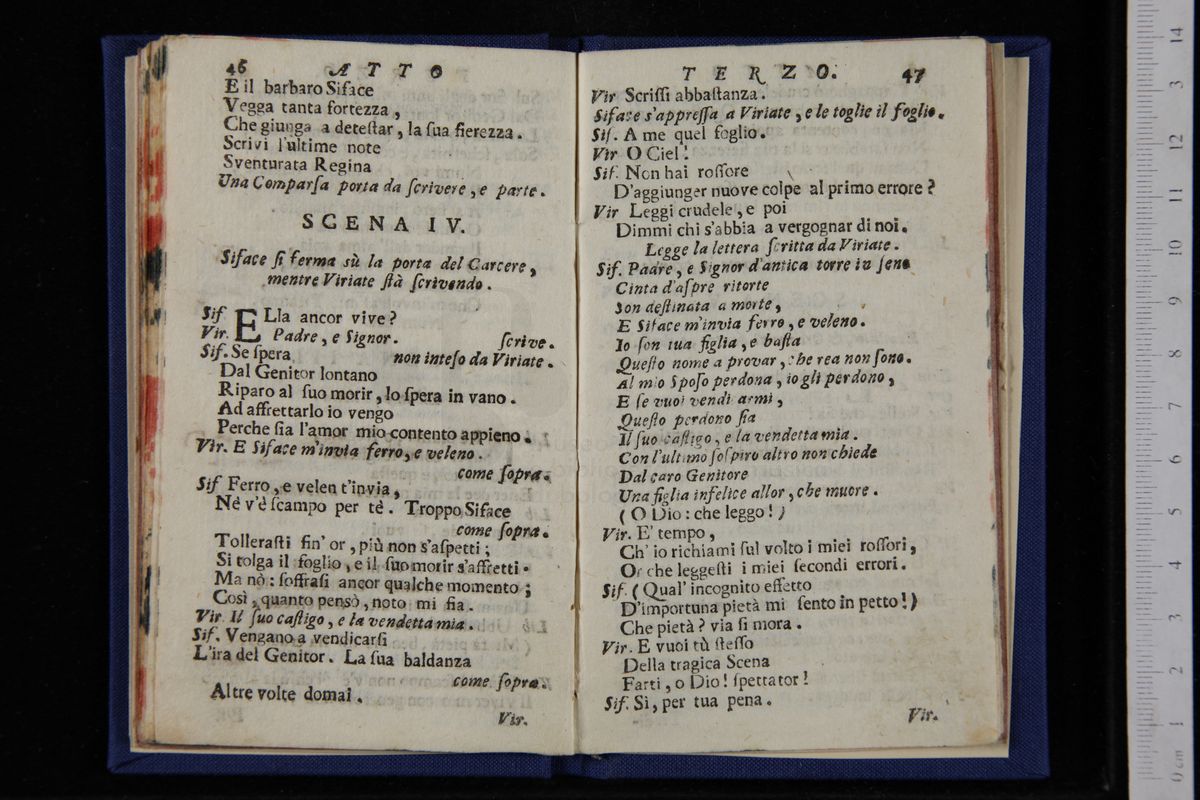 46 ATTO
E il barbaro Siface
Vegga tanta fortezza,
Che giunga a deteſtar, la ſua fierezza.
Scrivi l'ultime note
Sventurata Regina
Una Comparſa porta da ſcrivere, e parte.
SCENA IV.
Siface ſi ferma sù la porta del Carcere,
mentre Viriate ſtà ſcrivendo.
Sif. ELla ancor vive?
Vir. Padre, e Signor. ſcrive.
Sif. Se ſpera non inteſo da Viriate.
Dal Genitor lontano
Riparo al ſuo morir, lo ſpera in vano.
Ad affrettarlo io vengo
Perche ſia l'amor mio contento appieno.
Vir. E Siface m'invia ferro, e veleno.
come ſopra.
Sif Ferro, e velen t'invia,
Nè v'è ſcampo per te. Troppo Siface
come ſopra.
Tolleraſti fin' or, più non s'aſpetti;
Si tolga il foglio, e il ſuo morir s'affretti.
Ma nò: ſoffraſi ancor qualche momento;
Così, quanto pensò, noto mi fia.
Vir. Il ſuo caſtigo, e la vendetta mia.
Sif. Vengano a vendicarſi
L'ira del Genitor. La ſua baldanza
come ſopra.
Altre volte domai.
Vir.
TERZO. 47
Vir Scriſſi abbaſtanza.
Siface s'appreſſa a Viriate, e le toglie il foglio.
Sif. A me quel foglio.
Vir O Ciel!
Sif. Non hai roſſore
D'aggiunger nuove colpe al primo errore?
Vir Leggi crudele, e poi
Dimmi chi s'abbia a vergognar di noi.
Legge la lettera ſcritta da Viriate.
Sif. Padre, e Signor d'antica torre in ſeno
Cinta d'aſpre ritorte
Son deſtinata a morte,
E Siface m'invia ferro, e veleno.
Io ſon tua figlia, e baſta
Queſto nome a provar, che rea non ſono.
Al mio Spoſo perdona, io gli perdono,
E ſe vuoi vendi armi,
Queſto perdono ſia
Il ſuo caſtigo, e la vendetta mia.
Con l'ultimo ſoſpiro altro non chiede
Dal caro Genitore
Una figlia infelice allor, che muore.
(O Dio: che leggo!)
Vir. E' tempo,
Ch' io richiami ſul volto i miei roſſori,
Or che leggeſti i miei ſecondi errori.
Sif. (Qual' incognito effetto
D'importuna pietà mi ſento in petto!)
Che pietà? via ſi mora.
Vir. E vuoi tù ſteſſo
Della tragica Scena
Farti, o Dio! ſpettator!
Sif. Sì, per tua pena.
Vir.
0 cm 1 2 3 4 5 6 7 8 9 10 11 12 13 14